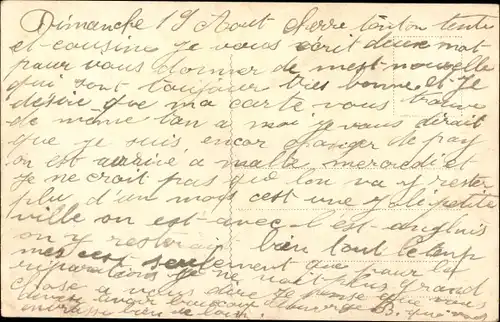 Dimanche 19 Aout cherre tonton tente
et cousine je vous écrit deux mot
pour vous donner de mest nouvelle
qui sont toujour tres bonne et je
désire que ma carte vous trouve
de mème tan a moi je vous dirait
que je suis encor changer de pay
on est arrivé a malte mercredi et
je ne croit pas que lon va y rester
plu d'un mois cest une y la petite
ville on est avec l'est anglais
on y resterait bien tout le temp
mes cest seulement que pour la
réparations je ne voit plus grand
chose a vous dire je pense que vous
devez avoir beaucoup
embrasse bien de loin.